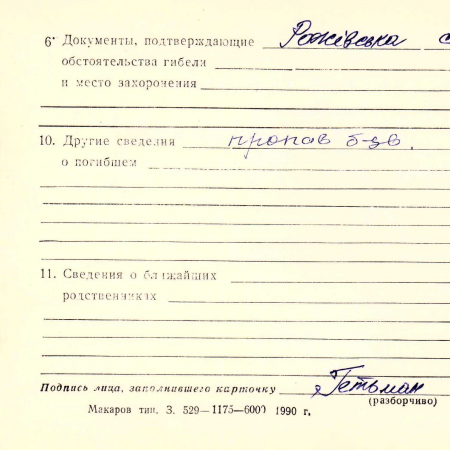 6. Документы, подтверждающие Рожівська с
обстоятельства гибели
и место захоронения
10. Другие сведения пропав б-зв.
о погибшем
11. Сведения о ближайших
родственниках
Подпись лица, заполнившего карточку Гетьман
(разборчиво)
Макаров тип. З. 529—1175—6000 1990 г.